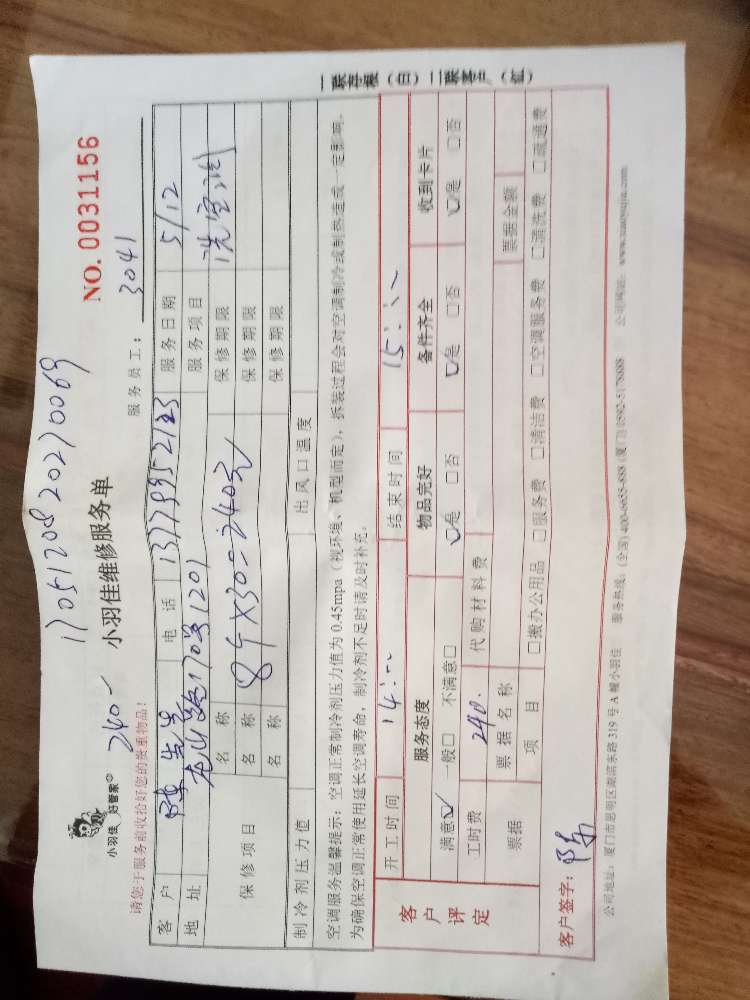 1705120820270069
240-
小羽佳 好管家
小羽佳维修服务单
NO. 0031156
请您于服务前收拾好您的贵重物品!
服务员工: 3041
客户 陈先生 电话 服务日期 5/12
地址 170号1201 服务项目 洗空调
保修项目 名称 8台×30=240元 保修期限
名称 保修期限
名称 保修期限
制冷剂压力值 出风口温度
空调服务温馨提示: 空调正常制冷剂压力值为 0.45mpa (视环境、机型而定), 拆装过程会对空调制冷或制热造成一定影响,
为确保空调正常使用延长空调寿命, 制冷剂不足时请及时补充。
一联存根 (白) 二联客户 (红)
客户评定
开工时间 14:-- 结束时间 15:--
服务态度 物品完好 备件齐全 收到卡片
满意☑ 一般□ 不满意□ ☑是 □否 ☑是 □否 ☑是 □否
工时费 240. 代购材料费
票据 票据名称 票据金额
项目 □搬办公用品 □服务费 □清洁费 □空调服务费 □清洗费 □疏通费
客户签字: 陈
公司地址: 厦门市思明区湖滨东路 319 号 A 幢小羽佳 服务热线: (全国) 400-6655-888 (厦门) 0592-5178688 公司网站: www.xiaoyujia.com